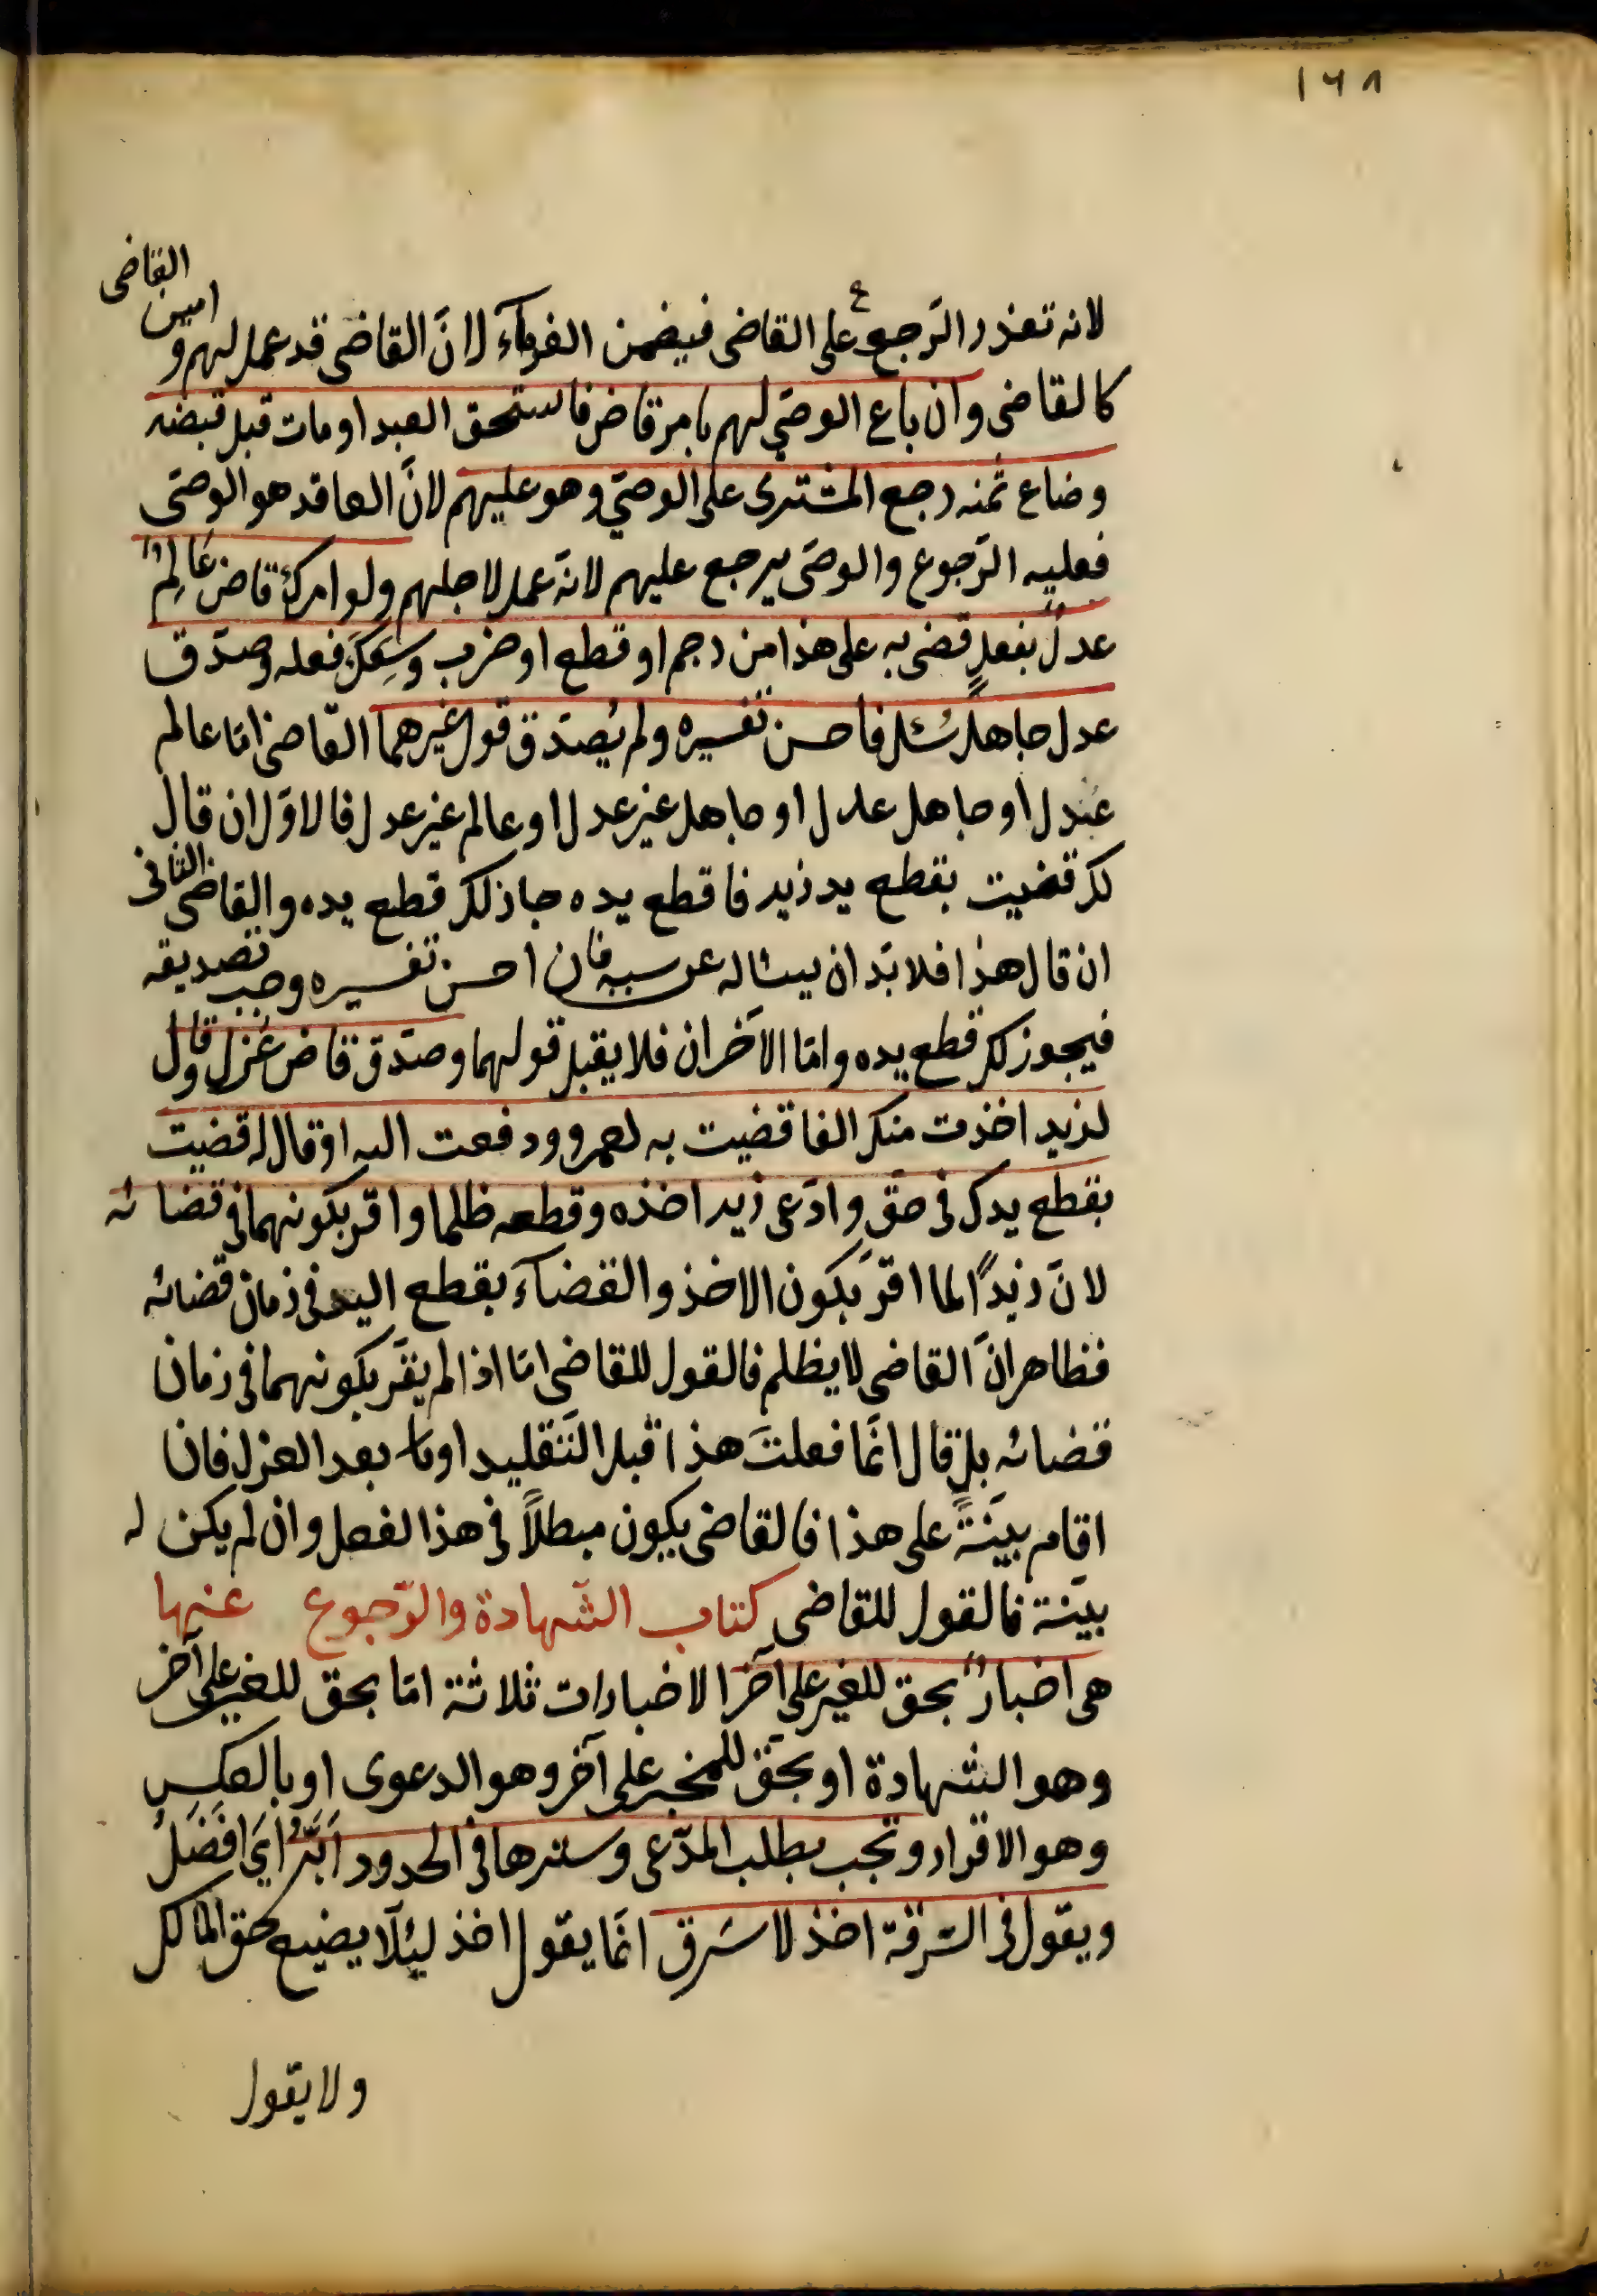 ١٦٨
لانه تعذر الرّجوع على القاضى فيضمن الغرمآء لانّ القاضى قد عمل لهم وامين القاضى
كالقاضى وان باع الوصّى لهم بامر قاض فاستحق العبد او مات قبل قبضه
وضاع ثمنه رجع المشترى على الوصّي وهو عليهم لانّ العاقد هو الوصّى
فعليه الرّجوع والوصّى يرجع عليهم لانّه عمل لاجلهم ولو امرك قاض عالمٌ
عدلٌ بفعلٍ قضى به على هذا من رجم او قطع او ضرب وسِعَكَ فعله وصدّق
عدل جاهلٌ سُئل فاحسن تفسيره ولم يُصدّق قول غيرهما القاضى امّا عالم
عدل او جاهل عدل او جاهل غير عدل او عالم غير عدل فالاوّل ان قال
لك قضيت بقطع يد زيد فاقطع يده جاز لك قطع يده والقاضى الثانى
ان قال هذا فلا بدّ ان يسئاله عن سببه فان احسن تفسيره وجب تصديقه
فيجوز لك قطع يده وامّا الآخران فلا يقبل قولهما وصدّق قاض عُزل وقال
لزيد اخذت منك الفا قضيت به لعمرو ودفعت اليه او قال له قضيت
بقطع يدك فى حقّ وادّعى زيد اخذه وقطعه ظلما واقر بكونهما فى قضائه
لانّ زيدًا لما اقرّ بكون الاخذ والقضآء بقطع اليد فى زمان قضائه
فظاهر انّ القاضى لا يظلم فالقول للقاضى امّا اذا لم يقرّ بكونهما فى زمان
قضائه بل قال انّما فعلتَ هذا قبل التّقليد او بعد العزل فان
اقام بيّنةً على هذا فالقاضى يكون مبطلاً فى هذا الفصل وان لم يكن له
بيّنة فالقول للقاضى كتاب الشّهادة والرّجوع عنها
هى اخبارٌ بحق للغير على آخر الاخبارات ثلاثة امّا بحق للغير على آخر
وهو الشهادة او بحقّ للمخبر على آخر وهو الدعوى او بالعكس
وهو الاقرار وتجب بطلب المدّعى وسترها فى الحدود اَبَرُّ اَيْ افضَلُ
ويقول فى السّرقة اخذ لا سَرق انّما يقول اخذ ليئلّا يضيع حق المالك
ولا يقول